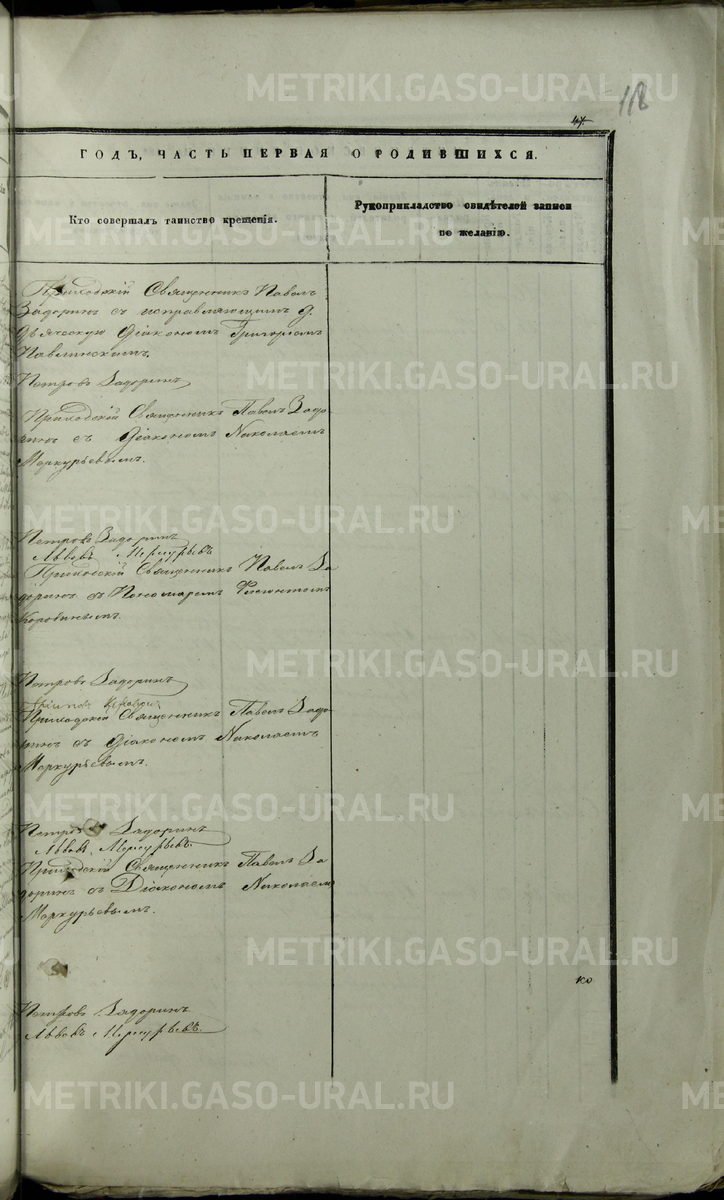 METRIKI.GASO-URAL.RU
118
47.
ГОДЪ, ЧАСТЬ ПЕРВАЯ О РОДИВШИХСЯ.
Кто совершалъ таинство крещенія.
Рукоприкладство свидѣтелей записи
по желанію.
Приходскій Священникъ Павелъ
Задоринъ съ исправляющимъ д.
дьяческую Діакономъ Григоріемъ
Павлинскимъ.
Петровъ Задоринъ
METRIKI.GASO-URAL.RU
Приходскій Священникъ Павелъ Задо-
ринъ съ Діакономъ Николаемъ
Меркурьевымъ.
METRIKI.GASO-URAL.RU
Петровъ Задоринъ
Львовъ Меркурьевъ
Приходскій Священникъ Павелъ За-
доринъ съ Пономаремъ
Коровинымъ.
METRIKI.GASO-URAL.RU
Петровъ Задоринъ
Приходскій Священникъ Павелъ Задо-
ринъ съ Діакономъ Николаемъ
Меркурьевымъ.
METRIKI.GASO-URAL.RU
Петровъ Задоринъ
Львовъ Меркурьевъ.
Приходскій Священникъ Павелъ За-
доринъ съ Діакономъ Николаемъ
Меркурьевымъ.
METRIKI.GASO-URAL.RU
Петровъ Задоринъ
Львовъ Меркурьевъ.
METRIKI.GASO-URAL.RU